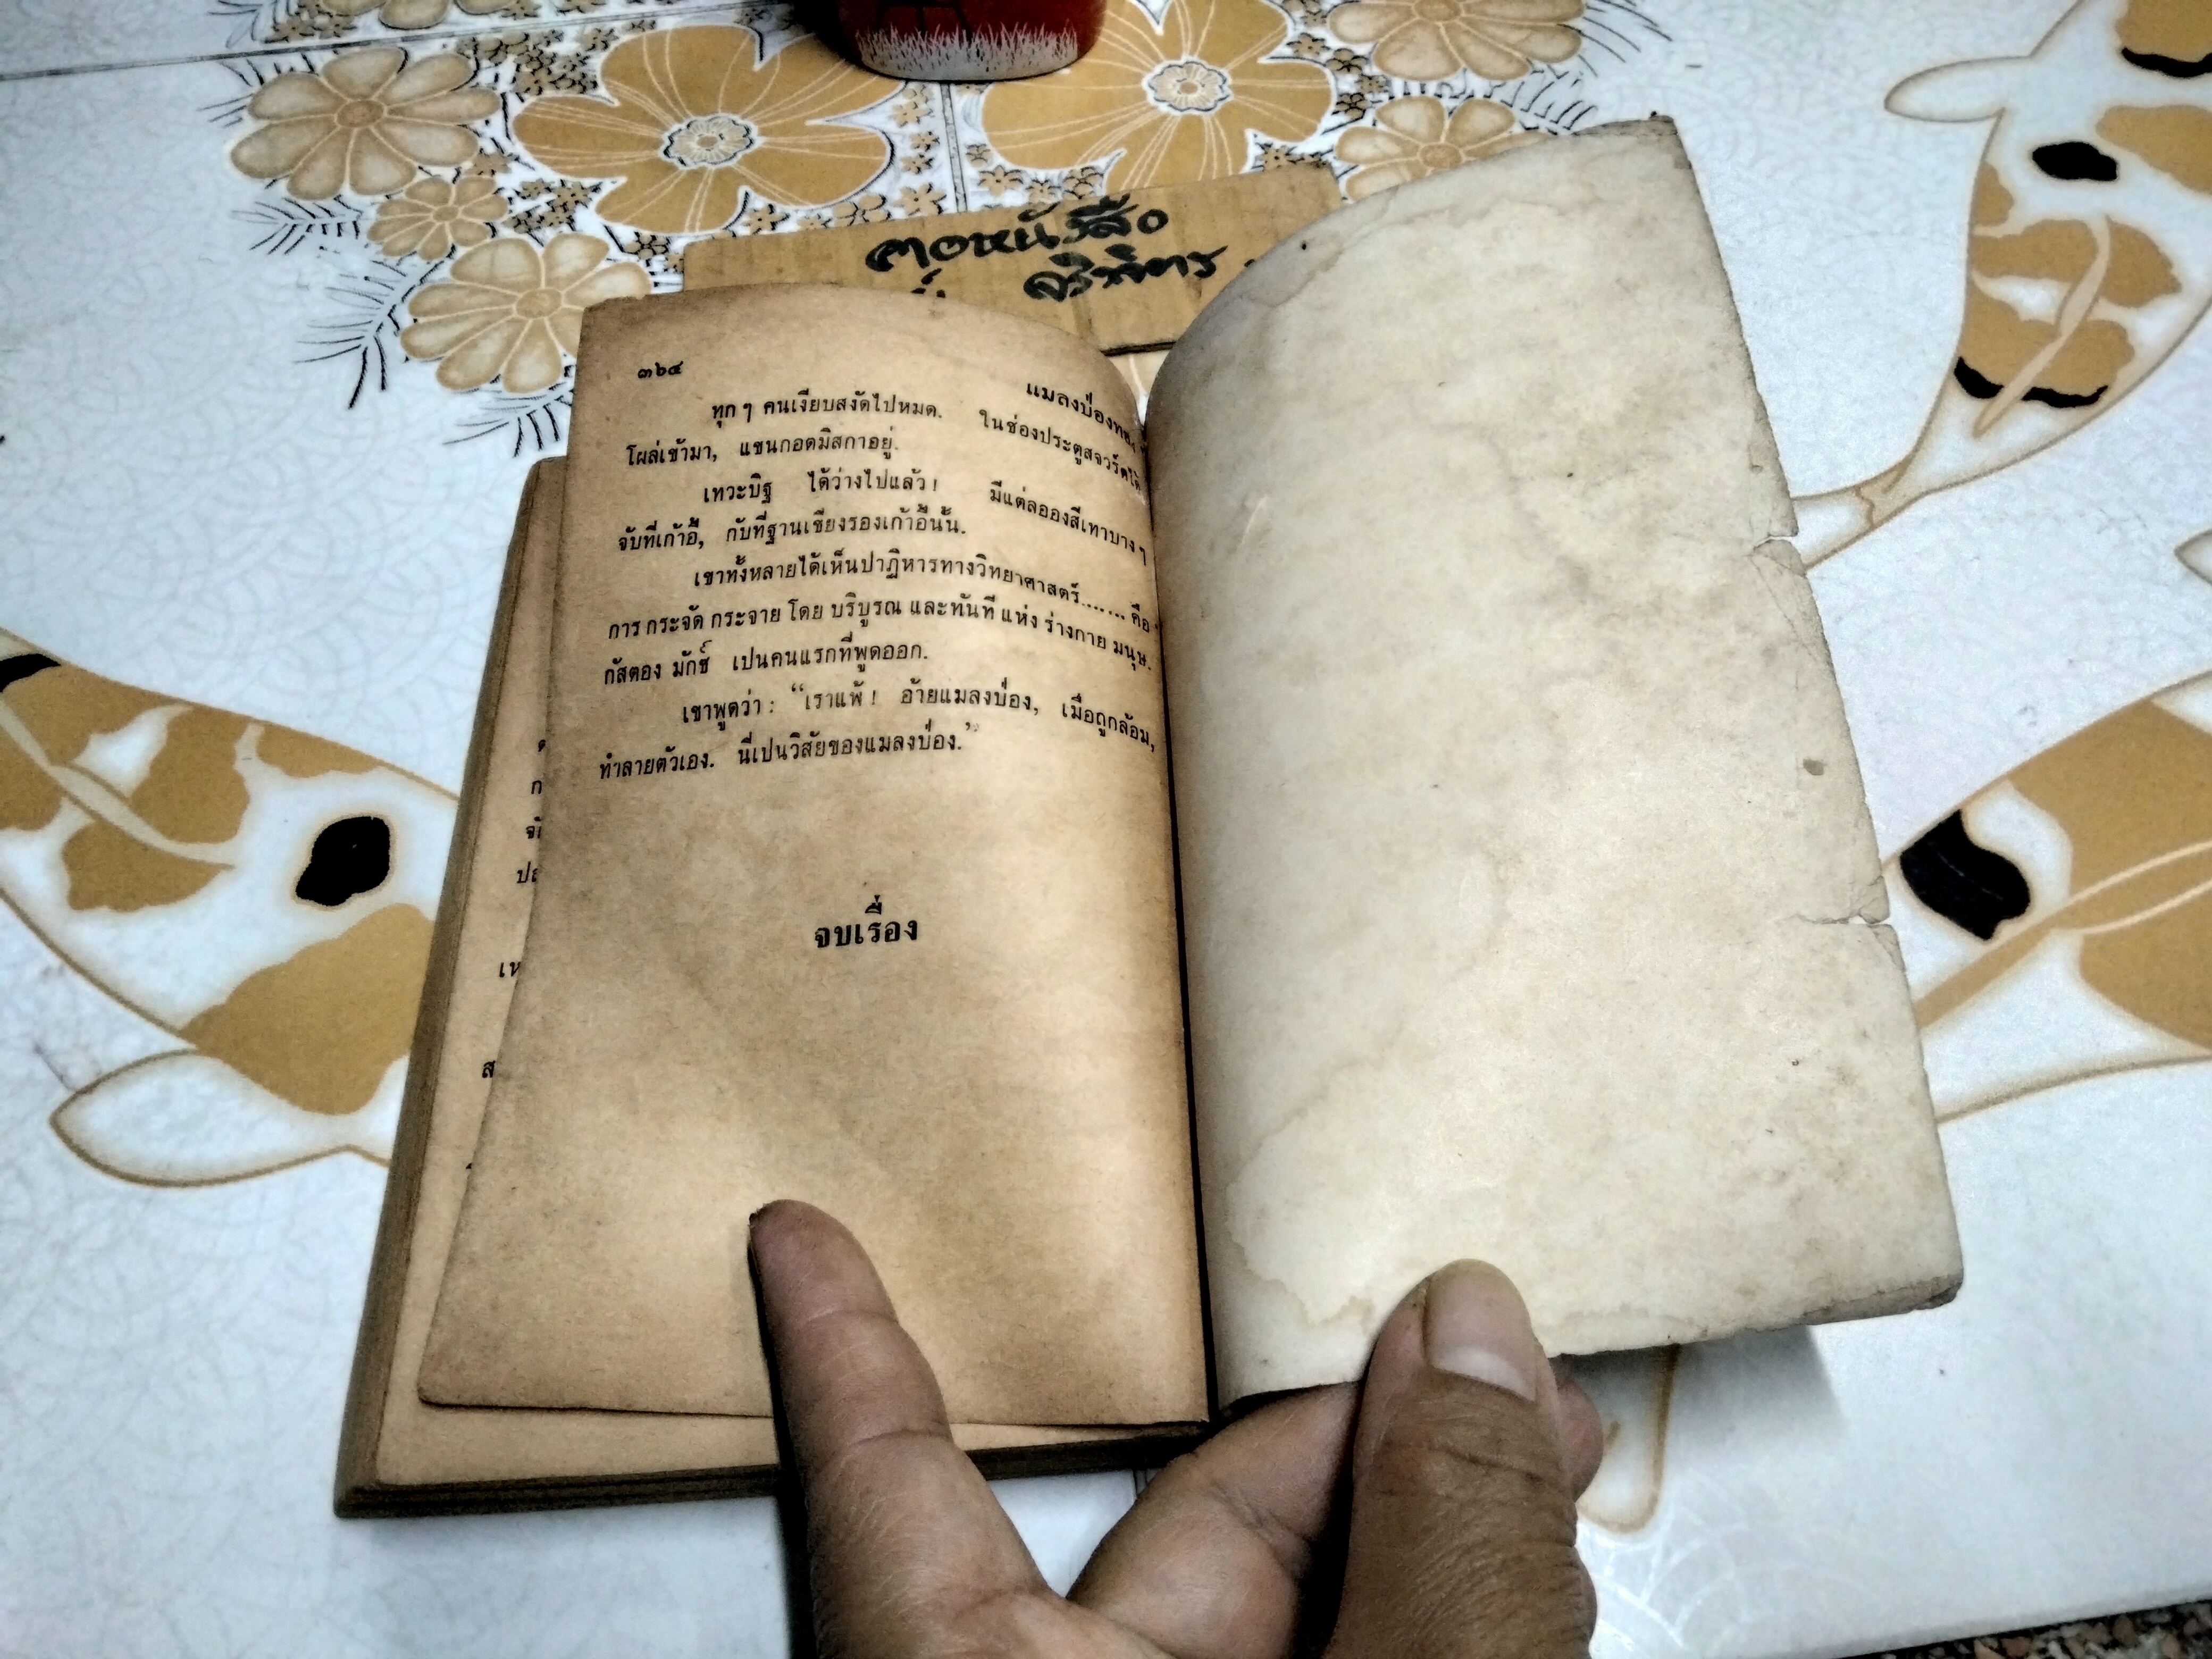 ตอหนังสือ
๓๖๔
แมลงป่องทอง
ทุก ๆ คนเงียบสงัดไปหมด. ในช่องประตูสจวร์ตได้
โผล่เข้ามา, แขนกอดมิสกาอยู่.
เทวะบิฐ ได้ว่างไปแล้ว! มีแต่ลอองสีเทาบาง ๆ
จับที่เก้าอี้, กับที่ฐานเชียงรองเก้าอี้นั้น.
เขาทั้งหลายได้เห็นปาฏิหารทางวิทยาศาสตร์....... คือ
การ กระจัด กระจาย โดย บริบูรณ และทันที แห่ง ร่างกาย มนุษ.
กัสตอง มักซ์ เปนคนแรกที่พูดออก.
เขาพูดว่า: “เราแพ้! อ้ายแมลงป่อง, เมื่อถูกล้อม,
ทำลายตัวเอง. นี่เปนวิสัยของแมลงป่อง.”
จบเรื่อง